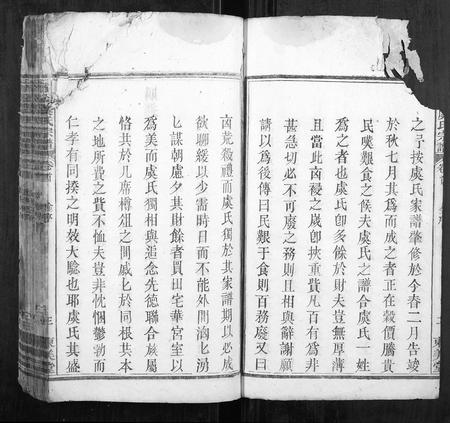 之予按虞氏家譜肇修於今春二月告竣
於秋七月其為而成之者正在穀價騰貴
民嘆艱食之候夫虞氏之譜合虞氏一姓
為之者也虞氏卽多餘於財夫豈無厚薄
且當此凾祲之嵗卽挾重貲凡百有為非
甚急切必不可廢之務則且相與辭謝願
請以為後傳曰民艱于食則百務廢又曰
凾荒殺禮而虞氏獨於其家譜期以必成
欲聊緩以少需時日而不能外間洶匕湧
匕謀朝慮夕其財餘者買田宅華宮室以
為美而虞氏獨相與追念先德聯合族屬
恪共於几席樽俎之間戚匕於同根其本
之地所費之貲不恤夫豈非忱悃鬱勃而
仁孝有同揆之明效大驗也耶虞氏其盛
虞氏宗譜
東美堂